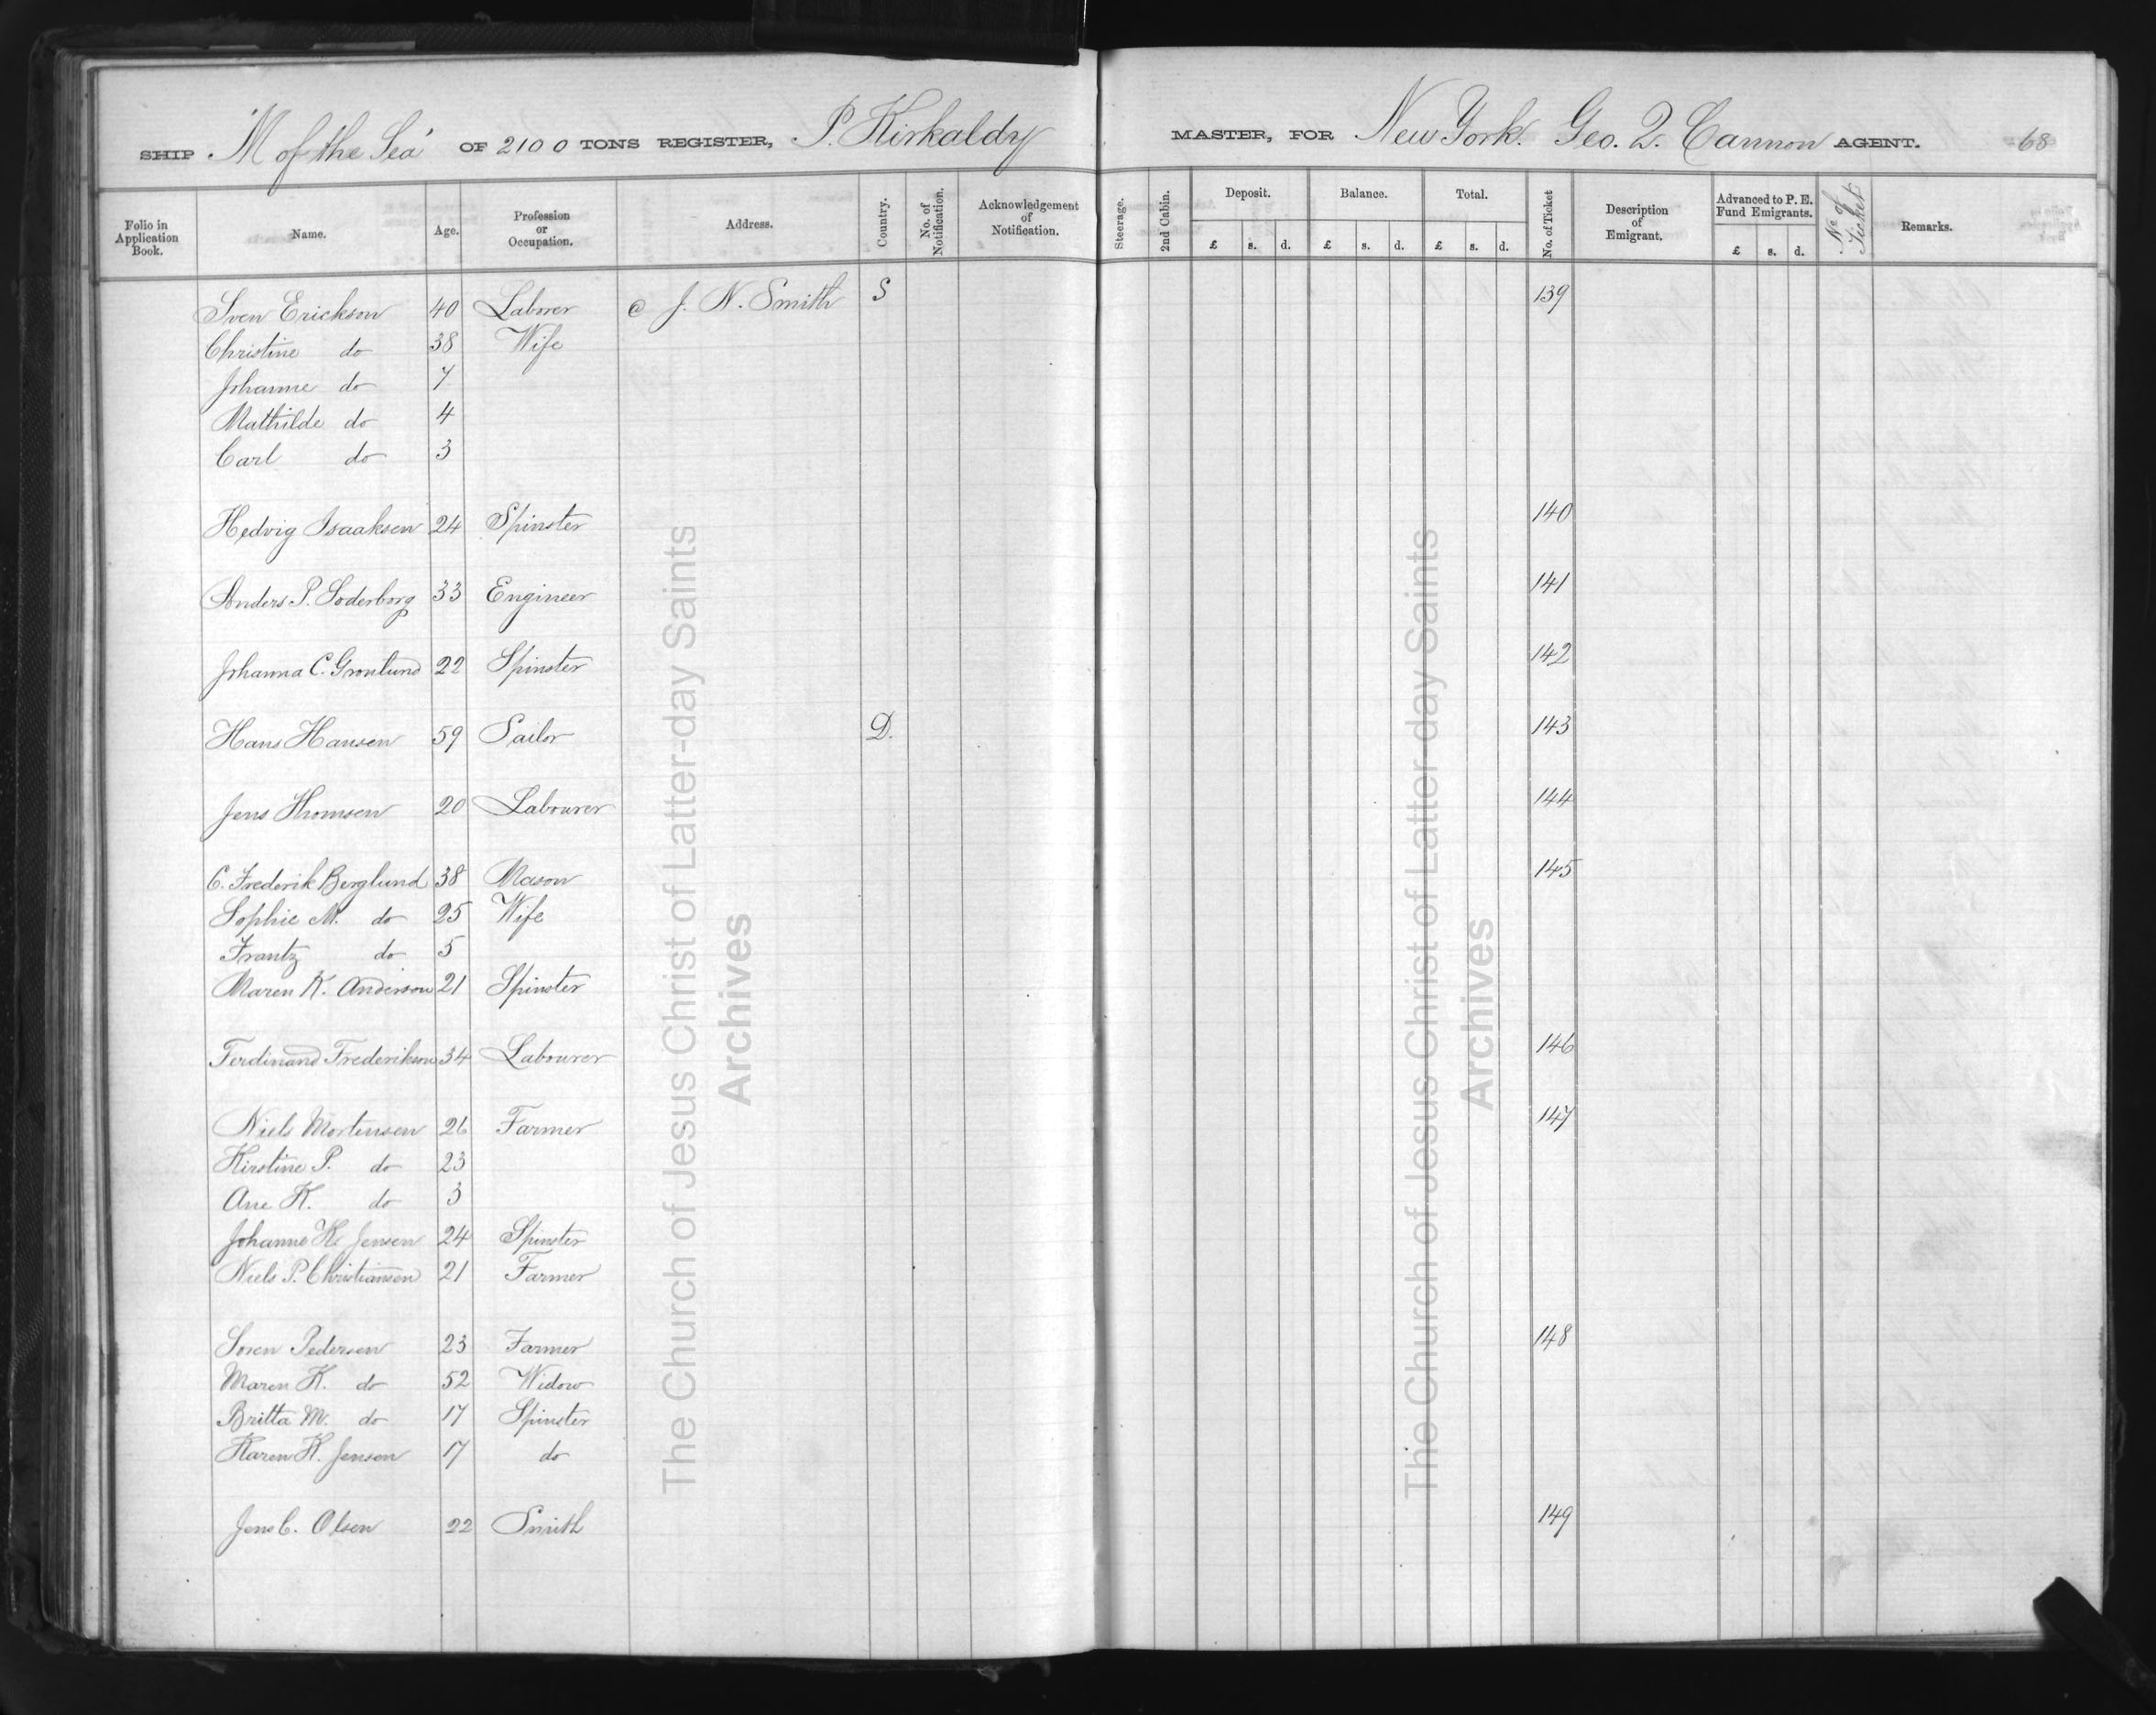 SHIP "M of the Sea" OF 2100 TONS REGISTER, P. Kirkaldy MASTER, FOR New York. Geo. Q. Cannon AGENT. 68
Folio in Application Book. Name. Age. Profession or Occupation. Address. Country. No. of Notification. Acknowledgement of Notification. Steerage. 2nd Cabin. Deposit. £ s. d. Balance. £ s. d. Total. £ s. d. No. of Ticket Description of Emigrant. Advanced to P. E. Fund Emigrants. £ s. d. No of Ticket Remarks.
Sven Erickson 40 Laborer c J. N. Smith S 139
Christine do 38 Wife
Johanne do 7
Mathilde do 4
Carl do 3
Hedvig Isaaksen 24 Spinster 140
Anders P. Soderborg 33 Engineer 141
Johanna C. Gronlund 22 Spinster 142
Hans Hansen 59 Sailor D. 143
Jens Thomsen 20 Labourer 144
C. Frederik Berglund 38 Mason 145
Sophie M. do 25 Wife
Frantz do 5
Maren K. Anderson 21 Spinster
Ferdinand Frederiksen 34 Labourer 146
Niels Mortensen 26 Farmer 147
Kirstine P. do 23
Ane K. do 3
Johanne K. Jensen 24 Spinster
Niels P. Christiansen 21 Farmer
Soren Pedersen 23 Farmer 148
Maren K. do 52 Widow
Britta M. do 17 Spinster
Karen K. Jensen 17 do
Jens C. Olsen 22 Smith 149
The Church of Jesus Christ of Latter-day Saints
Archives
The Church of Jesus Christ of Latter-day Saints
Archives